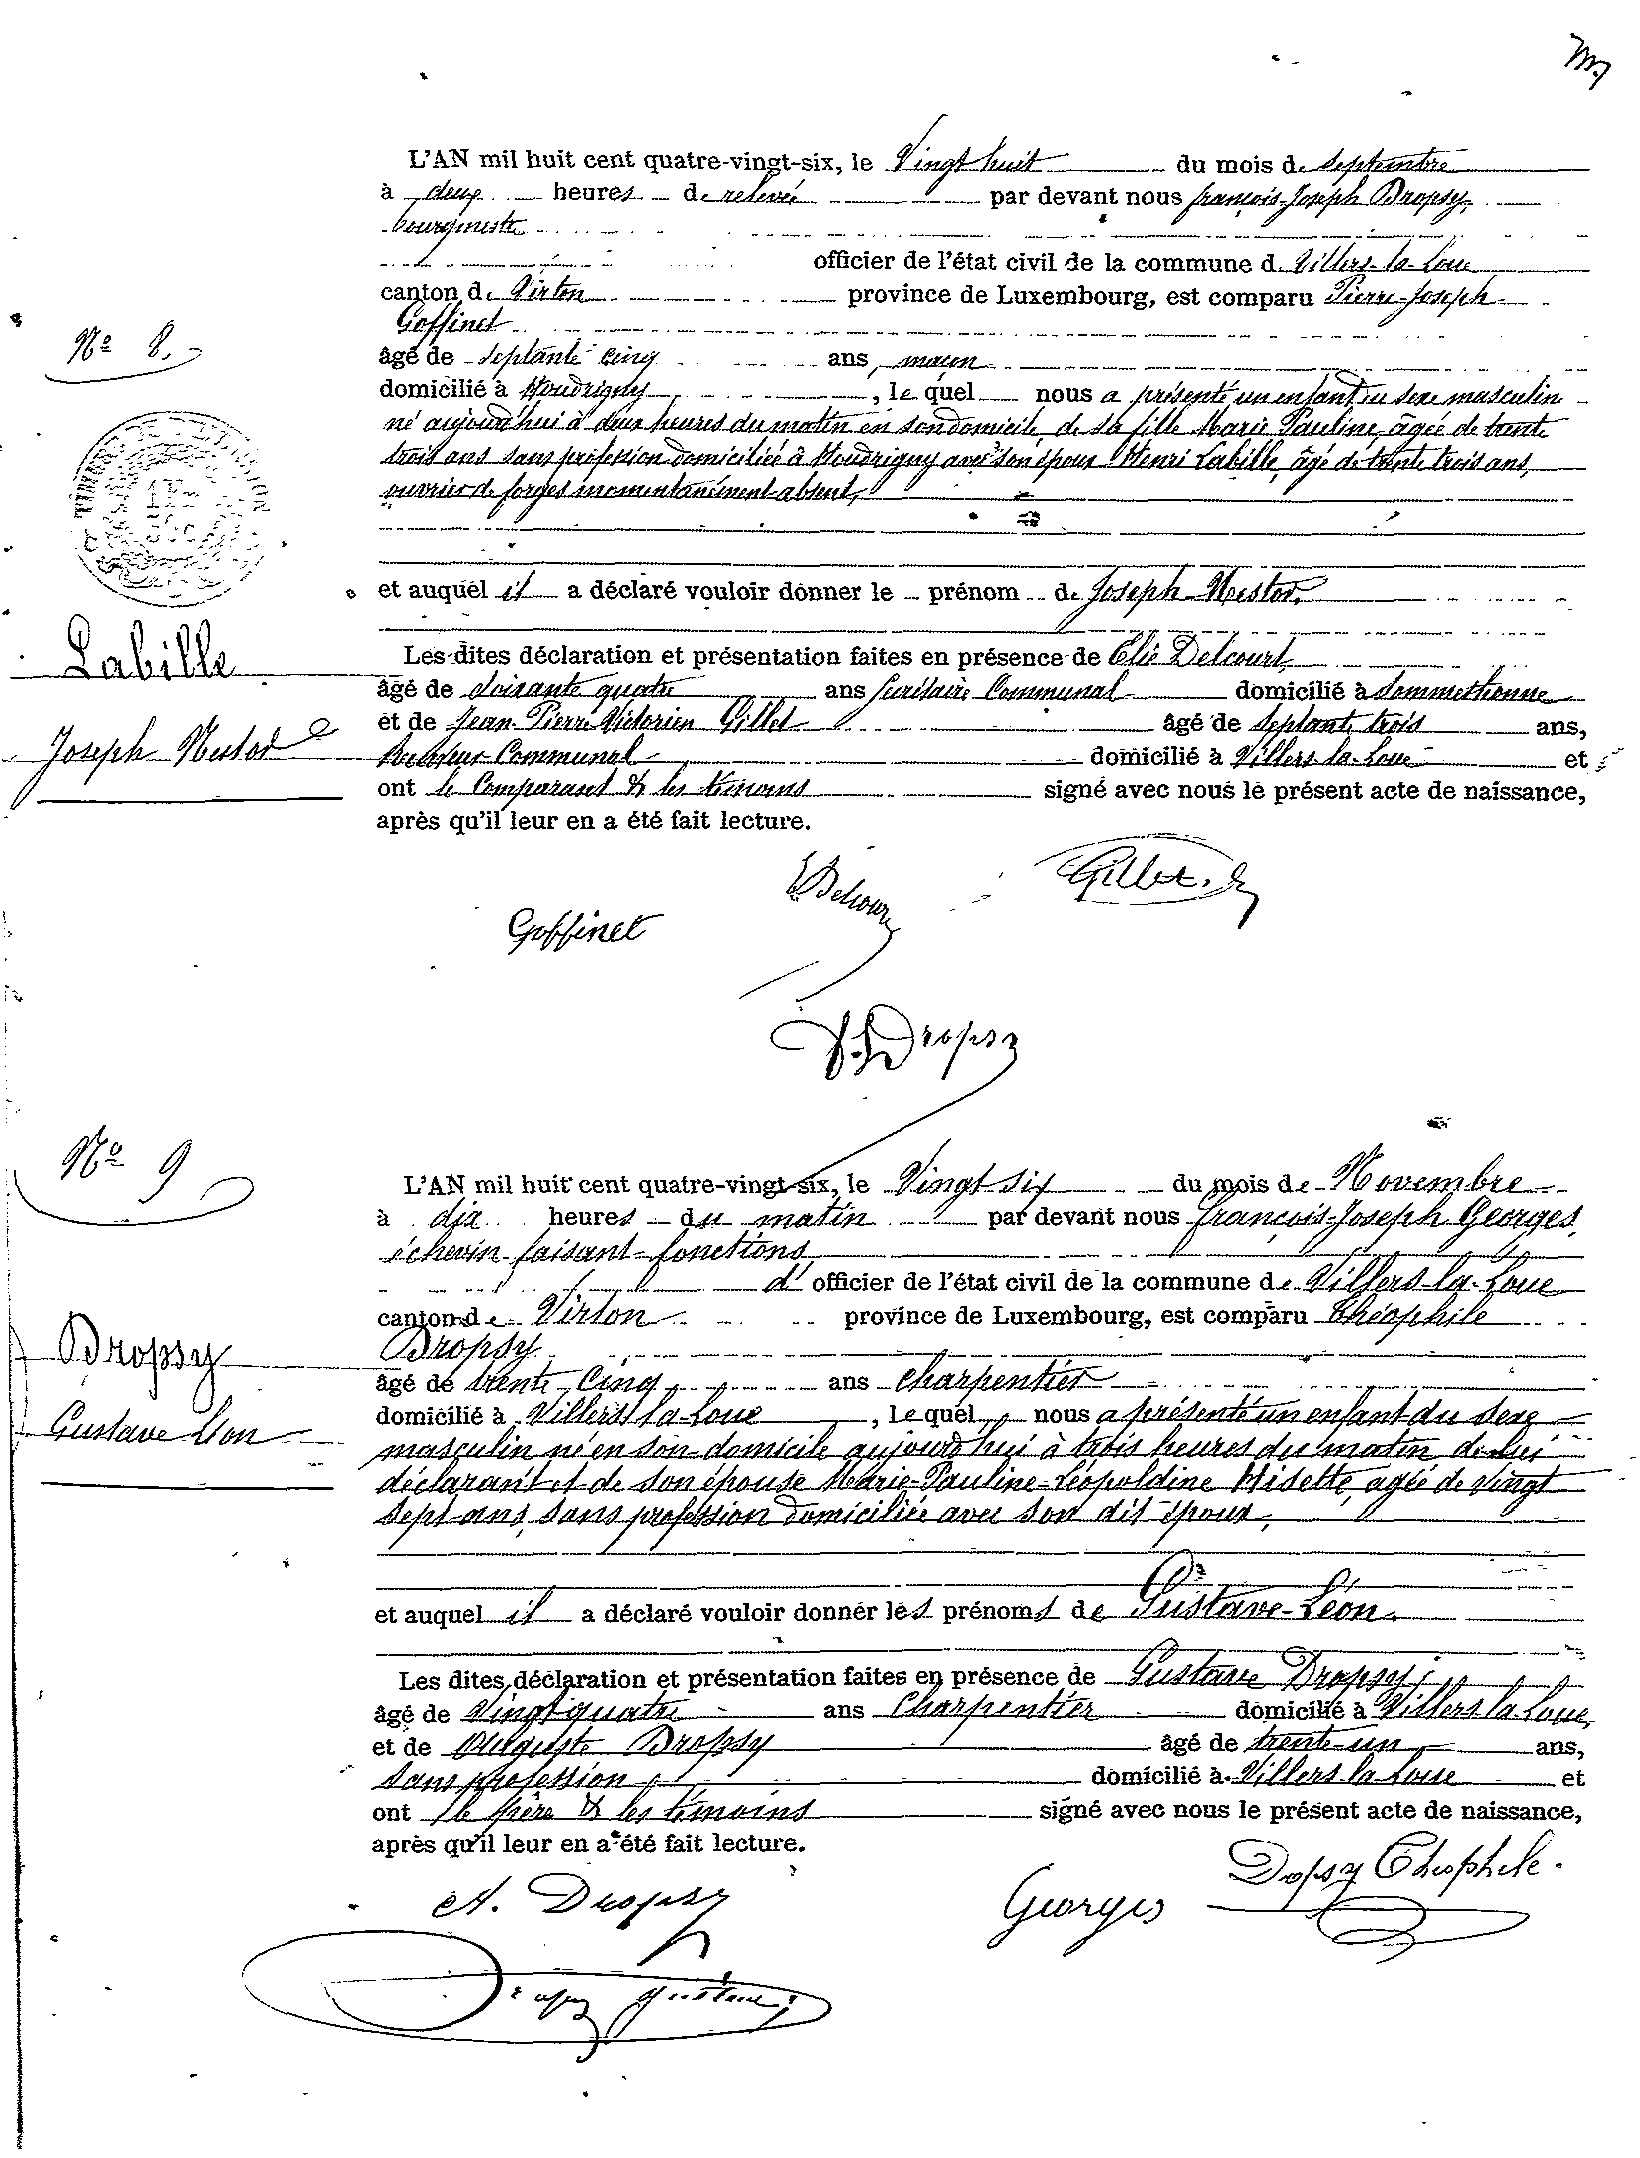 L'AN mil huit cent quatre-vingt-six, le Vingt huit du mois de Septembre
à deux heures de relevée par devant nous françois-Joseph Dropsy,
bourgmestre
officier de l'état civil de la commune de Villers-la-Loue
canton de Virton province de Luxembourg, est comparu Pierre-Joseph
Goffinet
Nº 8.
âgé de Septante cinq ans, maçon
domicilié à Houdrigny, le quel nous a présenté un enfant du sexe masculin
né aujourd'hui à deux heures du matin en son domicile, de sa fille Marie Pauline, âgée de trente
trois ans sans profession domiciliée à Houdrigny avec son époux Henri Labille, âgé de trente trois ans,
ouvrier de forges momentanément absent,
et auquel il a déclaré vouloir donner le prénom de Joseph-Nestor,
Labille
Les dites déclaration et présentation faites en présence de Elie Delcourt,
âgé de Soixante quatre ans Secrétaire Communal domicilié à Sommethonne
et de Jean-Pierre Victorien Gillet âgé de Septante trois ans,
Joseph Nestor
Receveur Communal domicilié à Villers-la-Loue et
ont le Comparant & les témoins signé avec nous le présent acte de naissance,
après qu'il leur en a été fait lecture.
Goffinet
E. Delcourt
Gillet
F. J. Dropsy
Nº 9
L'AN mil huit cent quatre-vingt-six, le Vingt-six du mois de Novembre
à dix heures du matin par devant nous françois-Joseph Georges,
échevin faisant fonctions
d' officier de l'état civil de la commune de Villers-la-Loue
canton de Virton province de Luxembourg, est comparu théophile
Dropsy
Dropsy
âgé de trente cinq ans charpentier
domicilié à Villers la-Loue, le quel nous a présenté un enfant du sexe
Gustave Léon
masculin né en son domicile aujourd'hui à trois heures du matin de lui
déclarant et de son épouse Marie-Pauline-Léopoldine Misette, agée de vingt
sept ans, sans profession domiciliée avec son dit époux,
et auquel il a déclaré vouloir donner les prénoms de Gustave-Léon.
Les dites déclaration et présentation faites en présence de Gustave Dropsy,
âgé de Vingt quatre ans Charpentier domicilié à Villers la-Loue,
et de Auguste Dropsy âgé de trente-un ans,
sans profession domicilié à Villers la-Loue et
ont le père & les témoins signé avec nous le présent acte de naissance,
après qu'il leur en a été fait lecture.
A. Dropsy
Georges
Dopsy Théophile.
Dropsy Gustave